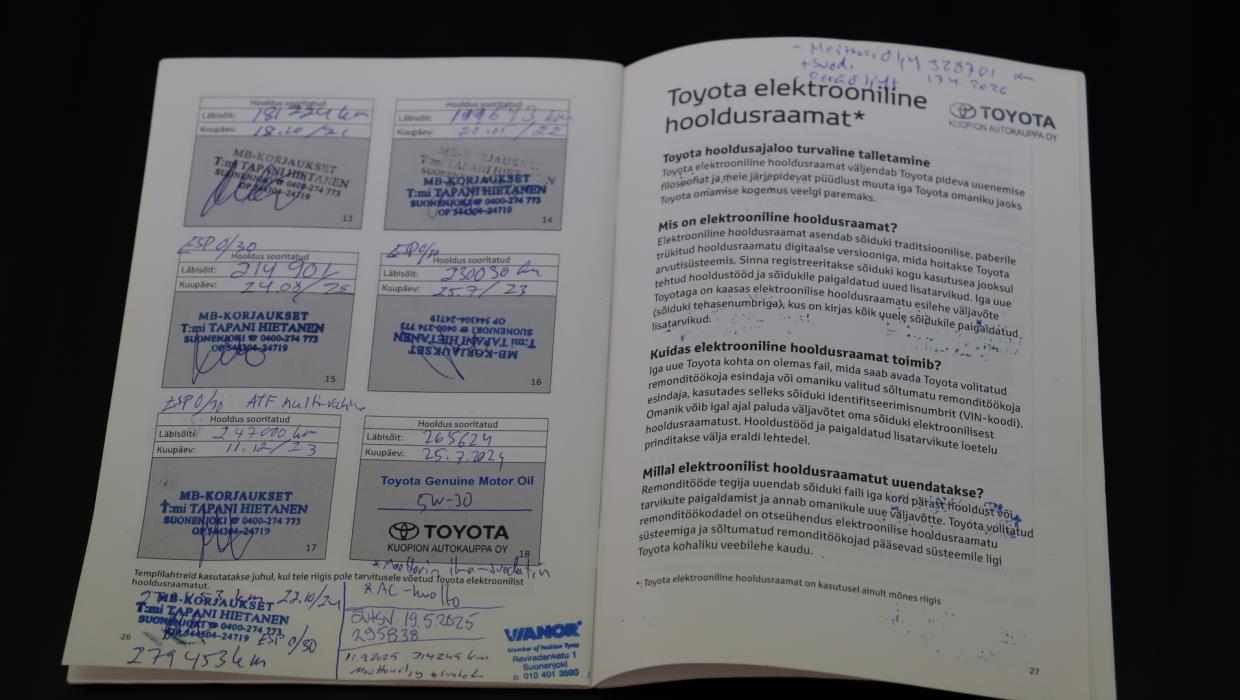 Hooldus sooritatud
Läbisõit: 181 724 km
Kuupäev: 18.10/21
MB-KORJAUKSET
T:mi TAPANI HIETANEN
SUONENJOKI ☎ 0400-274 773
OP 544304-24719
13
Hooldus sooritatud
Läbisõit: 199643 km
Kuupäev: 20.05/22
MB-KORJAUKSET
T:mi TAPANI HIETANEN
SUONENJOKI ☎ 0400-274 773
OP 544304-24719
14
ESP 0/30
Hooldus sooritatud
Läbisõit: 214 901
Kuupäev: 24.08/
MB-KORJAUKSET
T:mi TAPANI HIETANEN
SUONENJOKI ☎ 0400-274 773
OP 544304-24719
15
ESP 0/30
Hooldus sooritatud
Läbisõit: 230030 km
Kuupäev: 25.7/23
MB-KORJAUKSET
T:mi TAPANI HIETANEN
SUONENJOKI ☎ 0400-274 773
OP 544304-24719
16
ESP 0/30 ATF
Hooldus sooritatud
Läbisõit: 247000 km
Kuupäev: 11.12/23
MB-KORJAUKSET
T:mi TAPANI HIETANEN
SUONENJOKI ☎ 0400-274 773
OP 544304-24719
17
Hooldus sooritatud
Läbisõit: 265624
Kuupäev: 25.7.2024
Toyota Genuine Motor Oil
5W-30
TOYOTA
KUOPION AUTOKAUPPA OY
18
* Moottorin ilmansuodatin
* AC-huolto
Templilahtreid kasutatakse juhul, kui teie riigis pole tarvitusele võetud Toyota elektroonilist
hooldusraamatut.
279453 km 22.10/24
MB-KORJAUKSET
T:mi TAPANI HIETANEN
SUONENJOKI ☎ 0400-274 773
OP 544304-24719
ESP 0/30
279453 km
26
19.5.2025
295838
11.9.2025 314245 km
VIANOR
Member of Nokian Tyres
Raviradankatu 1
Suonenjoki
p. 010 401 3690
328701 km
17.4.2026
Toyota elektrooniline
hooldusraamat*
TOYOTA
KUOPION AUTOKAUPPA OY
Toyota hooldusajaloo turvaline talletamine
Toyota elektrooniline hooldusraamat väljendab Toyota pideva uuenemise
filosoofiat ja meie järjepidevat püüdlust muuta iga Toyota omaniku jaoks
Toyota omamise kogemus veelgi paremaks.
Mis on elektrooniline hooldusraamat?
Elektrooniline hooldusraamat asendab sõiduki traditsioonilise, paberile
trükitud hooldusraamatu digitaalse versiooniga, mida hoitakse Toyota
arvutisüsteemis. Sinna registreeritakse sõiduki kogu kasutusea jooksul
tehtud hooldustööd ja sõidukile paigaldatud uued lisatarvikud. Iga uue
Toyotaga on kaasas elektroonilise hooldusraamatu esilehe väljavõte
(sõiduki tehasenumbriga), kus on kirjas kõik uuele sõidukile paigaldatud
lisatarvikud.
Kuidas elektrooniline hooldusraamat toimib?
Iga uue Toyota kohta on olemas fail, mida saab avada Toyota volitatud
remonditöökoja esindaja või omaniku valitud sõltumatu remonditöökoja
esindaja, kasutades selleks sõiduki identifitseerimisnumbrit (VIN-koodi).
Omanik võib igal ajal paluda väljavõtet oma sõiduki elektroonilisest
hooldusraamatust. Hooldustööd ja paigaldatud lisatarvikute loetelu
prinditakse välja eraldi lehtedel.
Millal elektroonilist hooldusraamatut uuendatakse?
Remonditööde tegija uuendab sõiduki faili iga kord pärast hooldust või
tarvikute paigaldamist ja annab omanikule uue väljavõtte. Toyota volitatud
remonditöökodadel on otseühendus elektroonilise hooldusraamatu
süsteemiga ja sõltumatud remonditöökojad pääsevad süsteemile ligi
Toyota kohaliku veebilehe kaudu.
*: Toyota elektrooniline hooldusraamat on kasutusel ainult mõnes riigis
27